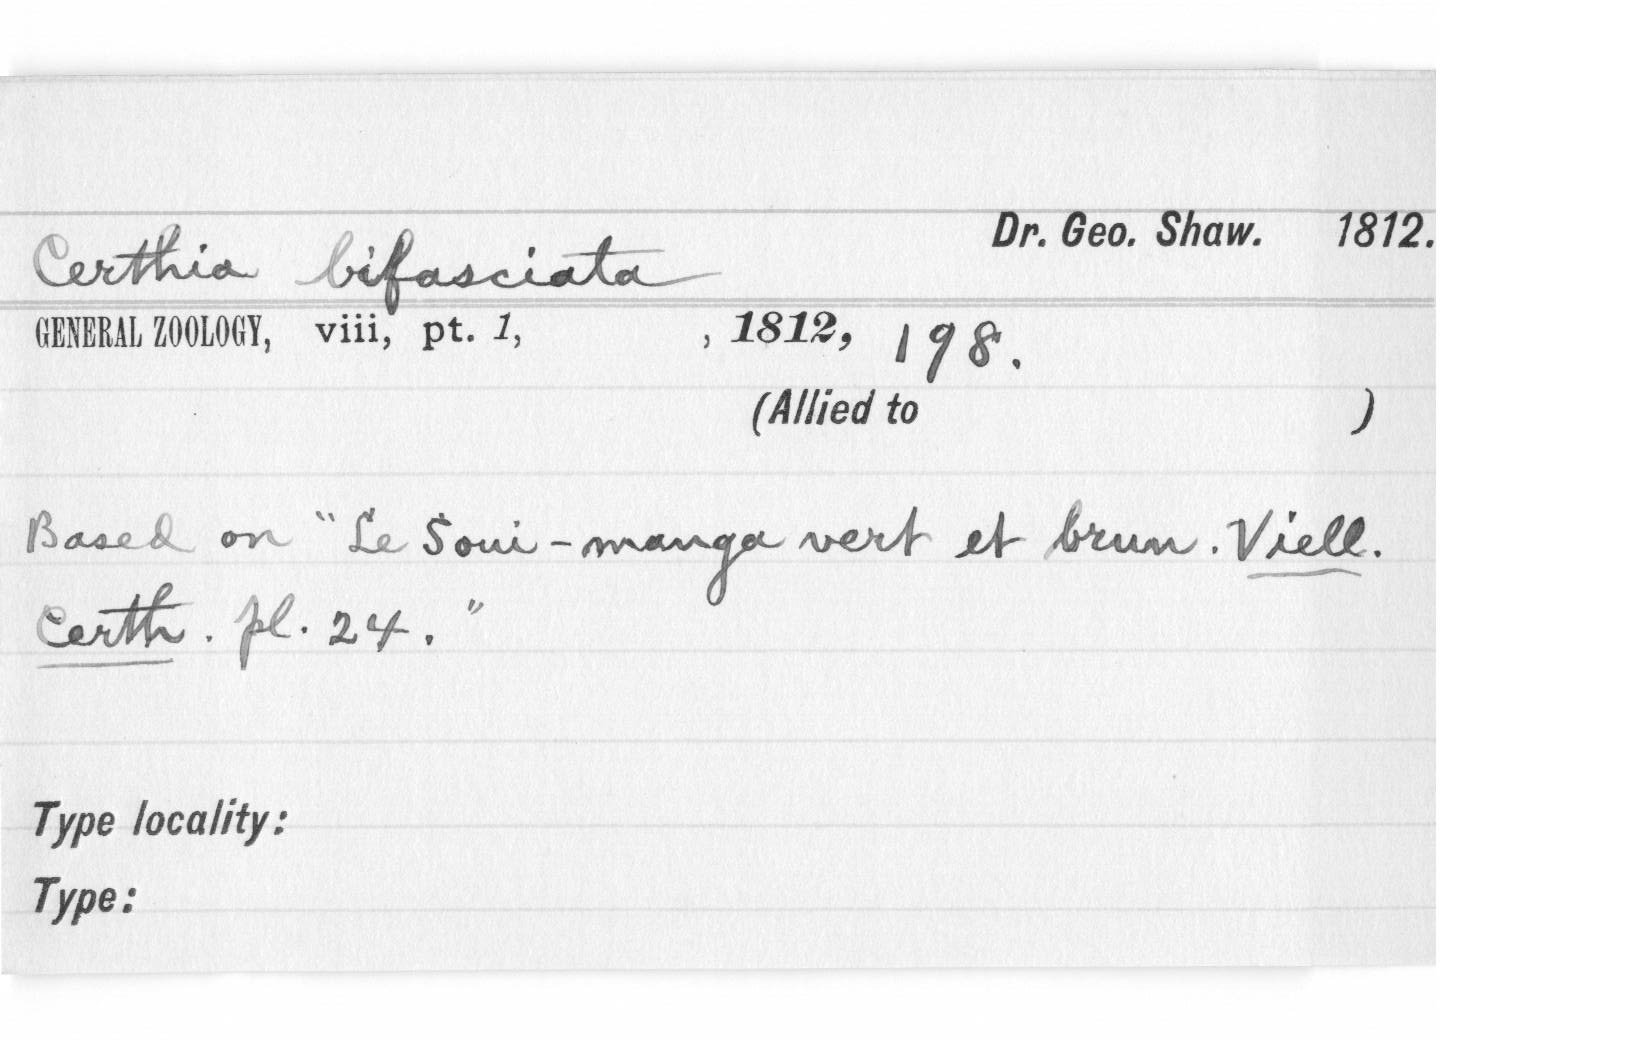 Dr. Geo. Shaw. 1812.
Certhia bifasciata
GENERAL ZOOLOGY, viii, pt. 1, , 1812, 198.
(Allied to )
Based on "Le Soui-manga vert et brun. Viell.
Certh. pl. 24."
Type locality:
Type: